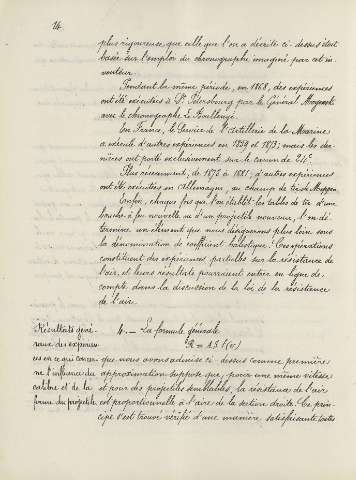 14
plus rigoureuse, que celle que l'on a décrite ci-dessus était
basée sur l'emploi du chronographe imaginé par cet in-
venteur.
Pendant la même période, en 1868, des expériences
ont été exécutées à St Pétersbourg par le Général Mayevski
avec le chronographe Le Boullengé.
En France, le Service de l'Artillerie de la Marine
a exécuté d'autres expériences en 1859 et 1873; mais les der-
nières ont porté exclusivement sur le canon de 24c.
Plus récemment, de 1875 à 1881, d'autres expériences
ont été exécutées en Allemagne, au champ de tir de Meppen.
Enfin, chaque fois que l'on établit les tables de tir d'une
bouche à feu nouvelle ou d'un projectile nouveau, l'on dé-
termine un élément que nous désignerons plus loin sous
la dénomination de coefficient balistique. Ces opérations
constituent des expériences partielles sur la résistance de
l'air, et leurs résultats pourraient entrer en ligne de
compte dans la discussion de la loi de la résistance
de l'air.
Résultats géné-
raux des expérien-
ces en ce qui concer-
ne l'influence du
calibre et de la
forme du projectile.
4. — La formule générale
R = A f(v)
que nous avons admise ci-dessus comme première
approximation suppose que, pour une même vitesse
et pour des projectiles semblables, la résistance de l'air
est proportionnelle à l'aire de la section droite. Ce prin-
cipe s'est trouvé vérifié d'une manière satisfaisante toutes